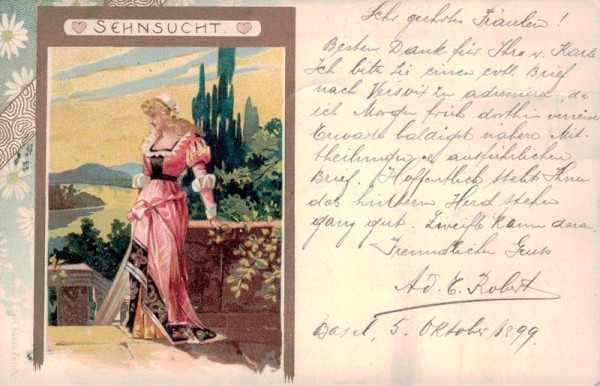 SEHNSUCHT.
Sehr geehrtes Fräulein!
Besten Dank für Ihre w. Karte
Ich bitte Sie einen evtl. Brief
nach zu adressieren, da
ich Morgen früh dorthin verreise
Erwarte baldigst nähere Mit-
theilungen ausführlichen
Brief. Hoffentlich steht Ihnen
das hüthern Herd stehn
ganz gut. Zweifle kaum daran.
Freundlicher Gruss
Ad. E. Robert
Basel, 5. Oktober 1899